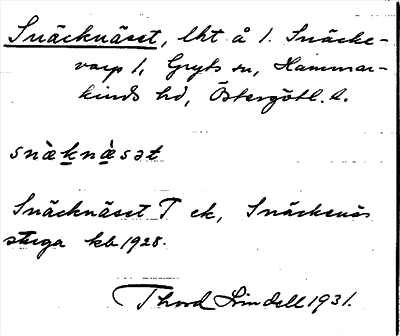 Snäcknäset, lht å 1. Snäcke-
varp 1, Gryts sn, Hammar-
kinds hd, Östergötl. l.
snæknæsət
Snäcknäset T ek, Snäckenäs
stuga kb 1928.
Thord Lindell 1931.